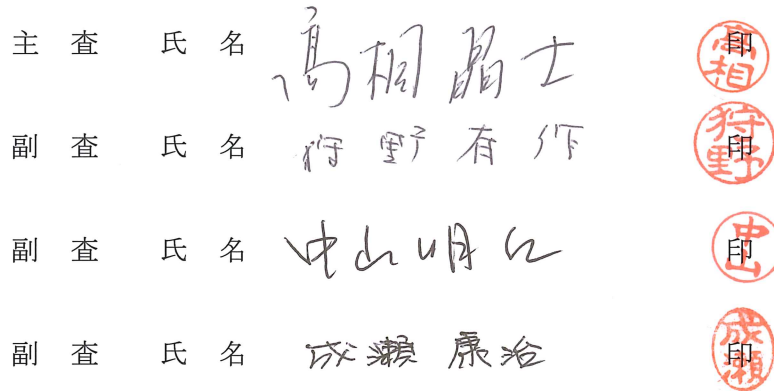 主査 氏名 高相晶士 印 高相
副査 氏名 狩野有作 印 狩野
副査 氏名 中山明仁 印 中山
副査 氏名 成瀬康治 印 成瀬